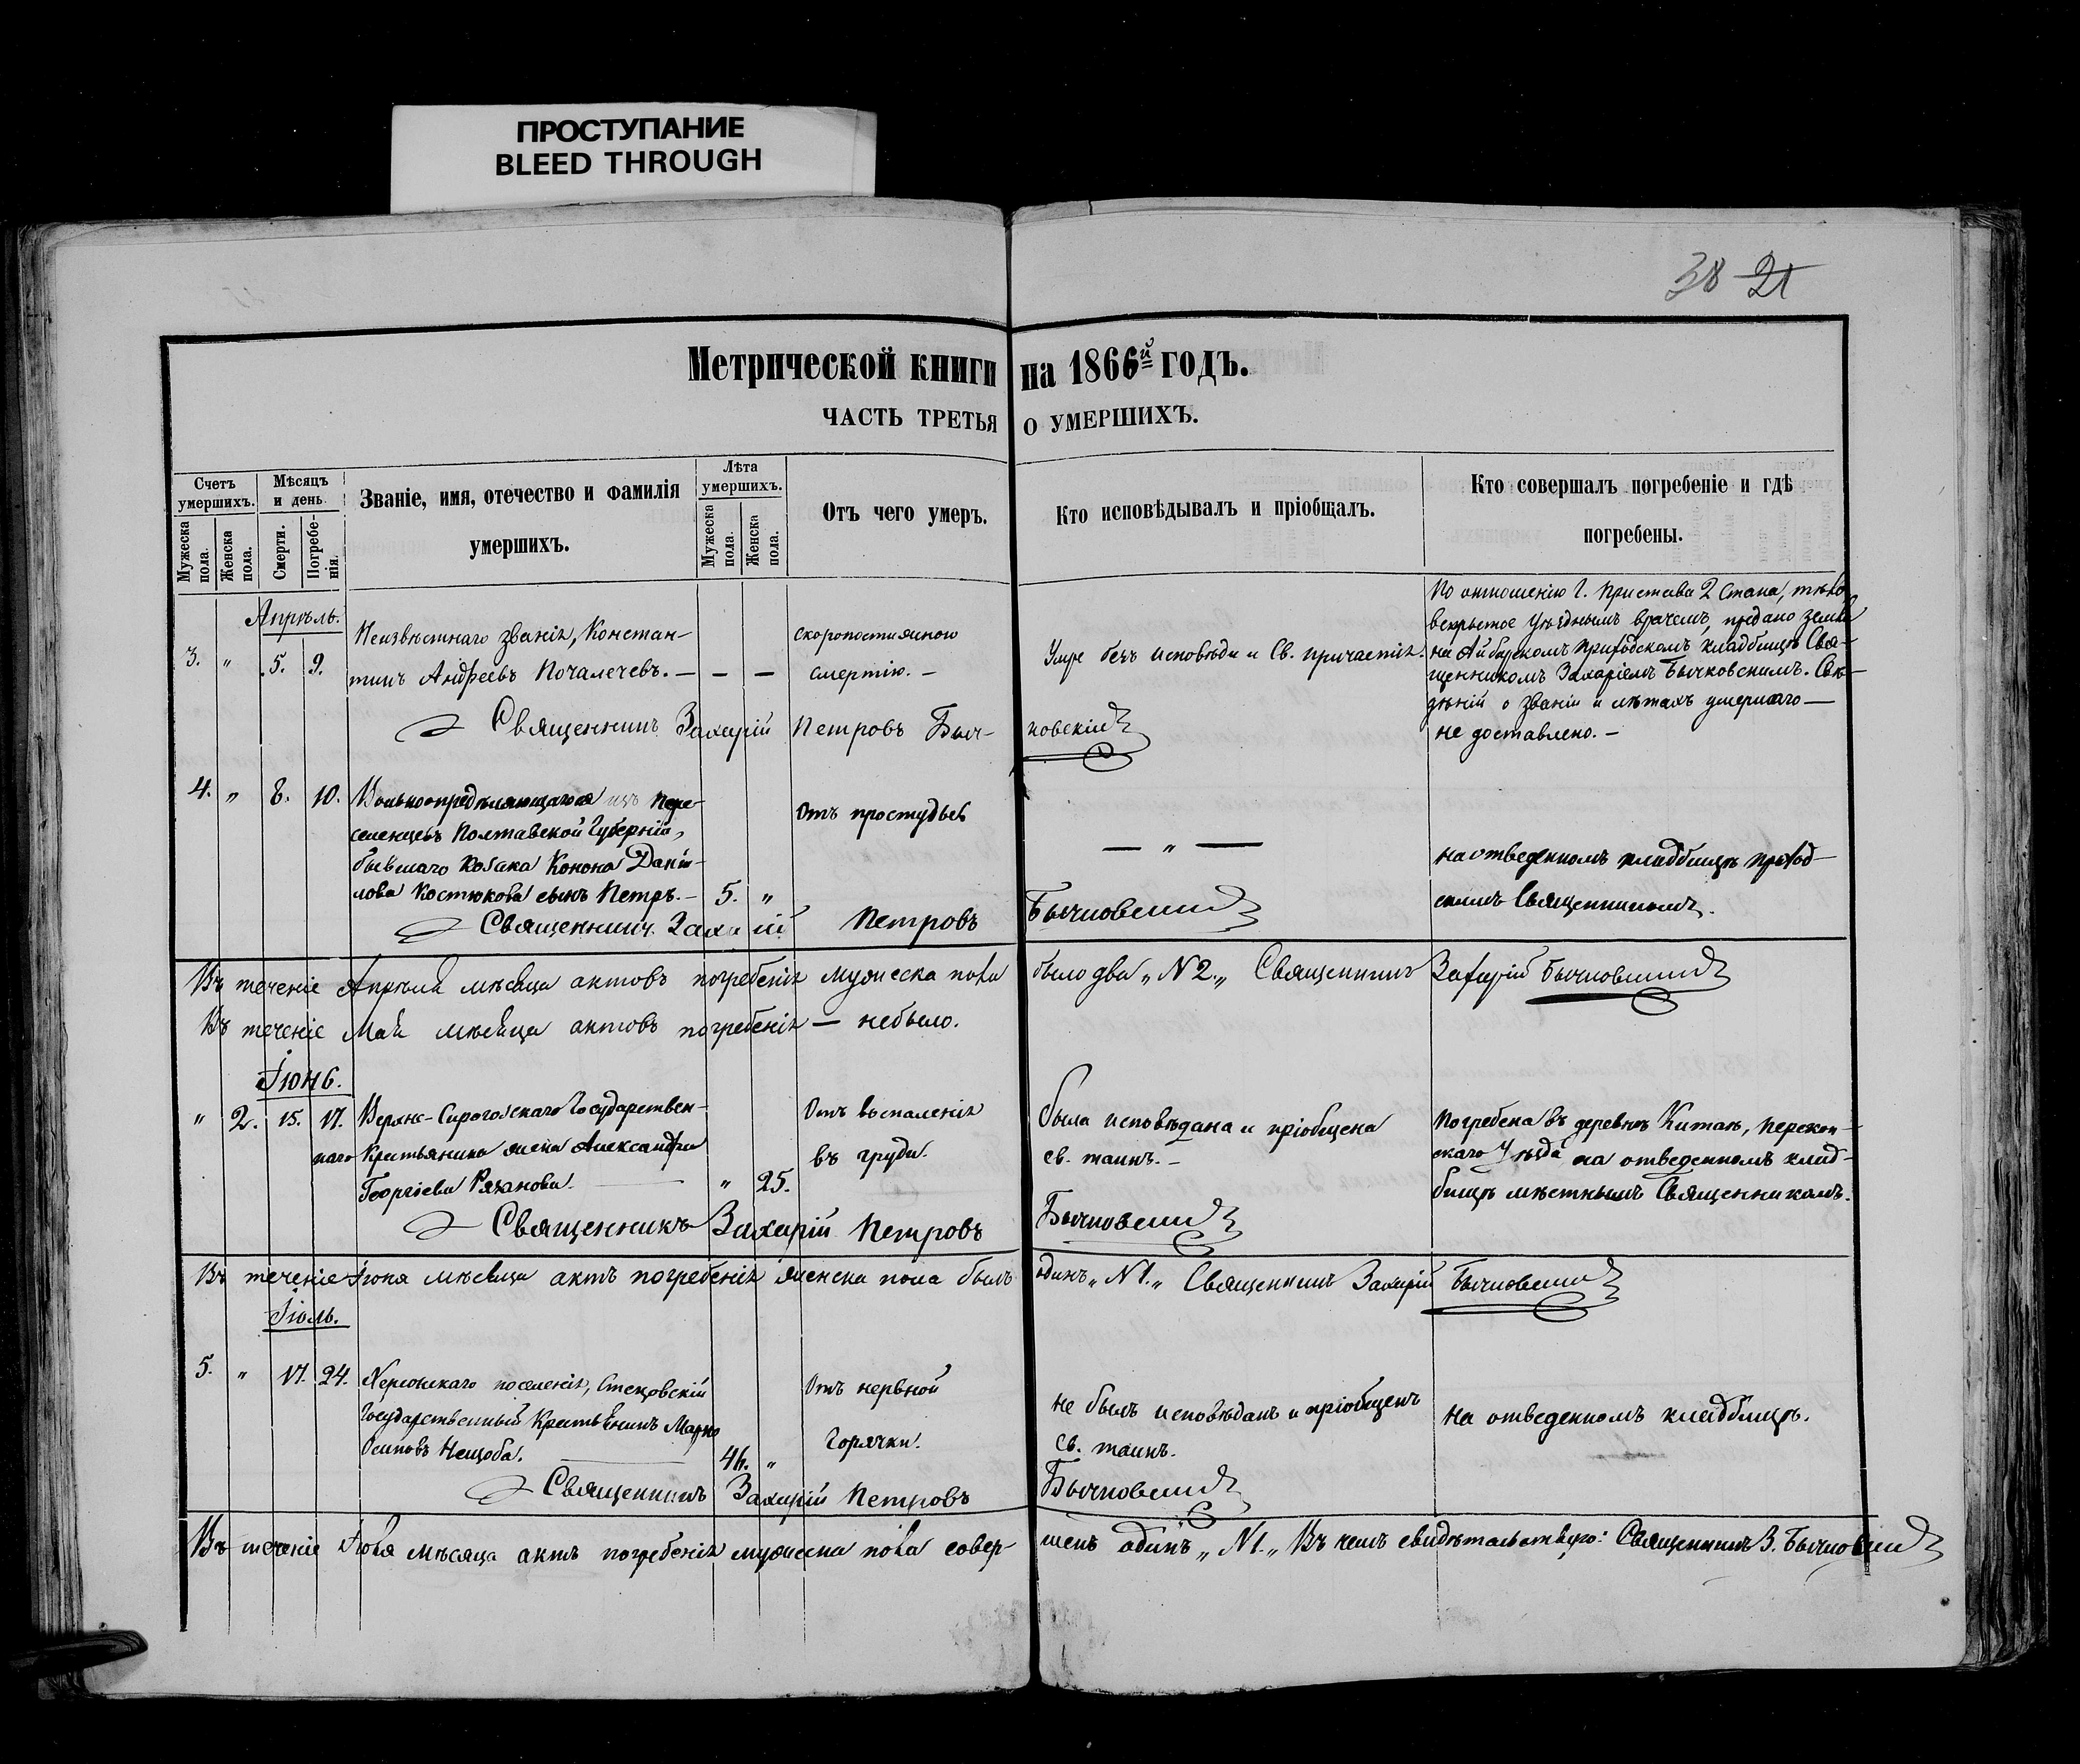 ПРОСТУПАНИЕ
BLEED THROUGH
38 21
Метрической книги на 1866й годъ.
ЧАСТЬ ТРЕТЬЯ О УМЕРШИХЪ.
Счетъ умершихъ.
Мужеска пола.
Женска пола.
Мѣсяцъ и день
Смерти.
Погребенія.
Званіе, имя, отечество и фамилія
умершихъ.
Лѣта умершихъ.
Мужеска пола.
Женска пола.
Отъ чего умеръ.
Кто исповѣдывалъ и пріобщалъ.
Кто совершалъ погребеніе и гдѣ
погребены.
Апрѣль.
3. „ 5. 9.
Неизвѣстнаго званія, Констан-
тинъ Андреевъ Почалечевъ. — — —
скоропостижною
смертію. —
Умре безъ исповѣди и Св. причастія.
По отношенію Г. Пристава 2 Стана, тѣло
вскрытое Уѣзднымъ врачемъ, предано земле
на Айбарскомъ приходскомъ кладбищѣ Свя-
щенникомъ Захаріемъ Бычковскимъ. Свѣ-
дѣній о званіи и лѣтахъ умершаго —
не доставлено. —
Священникъ Захарій Петровъ Быч-
ковскій
4. „ 8. 10.
Вольноопредѣляющагося изъ пере-
селенцевъ Полтавской Губерніи,
бывшаго козака Конона Дани-
лова Костюкова сынъ Петръ. — 5. „
Отъ простуды
— „ —
на отведенномъ кладбищѣ приход-
скимъ Священникомъ.
Священникъ Захарій Петровъ Бычковскій
Въ теченіе Апрѣля мѣсяца актовъ погребенія мужеска пола было два „N 2„ Священникъ Захарій Бычковскій
Въ теченіе Мая мѣсяца актовъ погребенія — небыло.
Іюнь.
„ 2. 15. 17.
Верхне-Сирогозскаго Государствен-
наго Крестьянина жена Александра
Георгіева Рязанова. — „ 25.
Отъ воспаленія
въ груди.
была исповѣдана и пріобщена
св. таинъ. —
Погребена въ деревнѣ Китаѣ, Перекоп-
скаго Уѣзда на отведенномъ клад-
бищѣ мѣстнымъ Священникомъ.
Священникъ Захарій Петровъ Бычковскій
Въ теченіе Іюня мѣсяца актъ погребенія женска пола былъ одинъ „N 1.„ Священникъ Захарій Бычковскій
Іюль.
5. „ 17. 24.
Херсонскаго поселенія, Стецовскій
Государственный Крестьянинъ Марко
Осиповъ Нещоба. — 46. „
Отъ нервной
горячки.
не былъ исповѣданъ и пріобщенъ
св. таинъ.
на отведенномъ кладбищѣ.
Священникъ Захарій Петровъ Бычковскій
Въ теченіе Іюля мѣсяца актъ погребенія мужеска пола совер-
шенъ одинъ „N 1.„ Въ чемъ свидѣтельствую: Священникъ З. Бычковскій